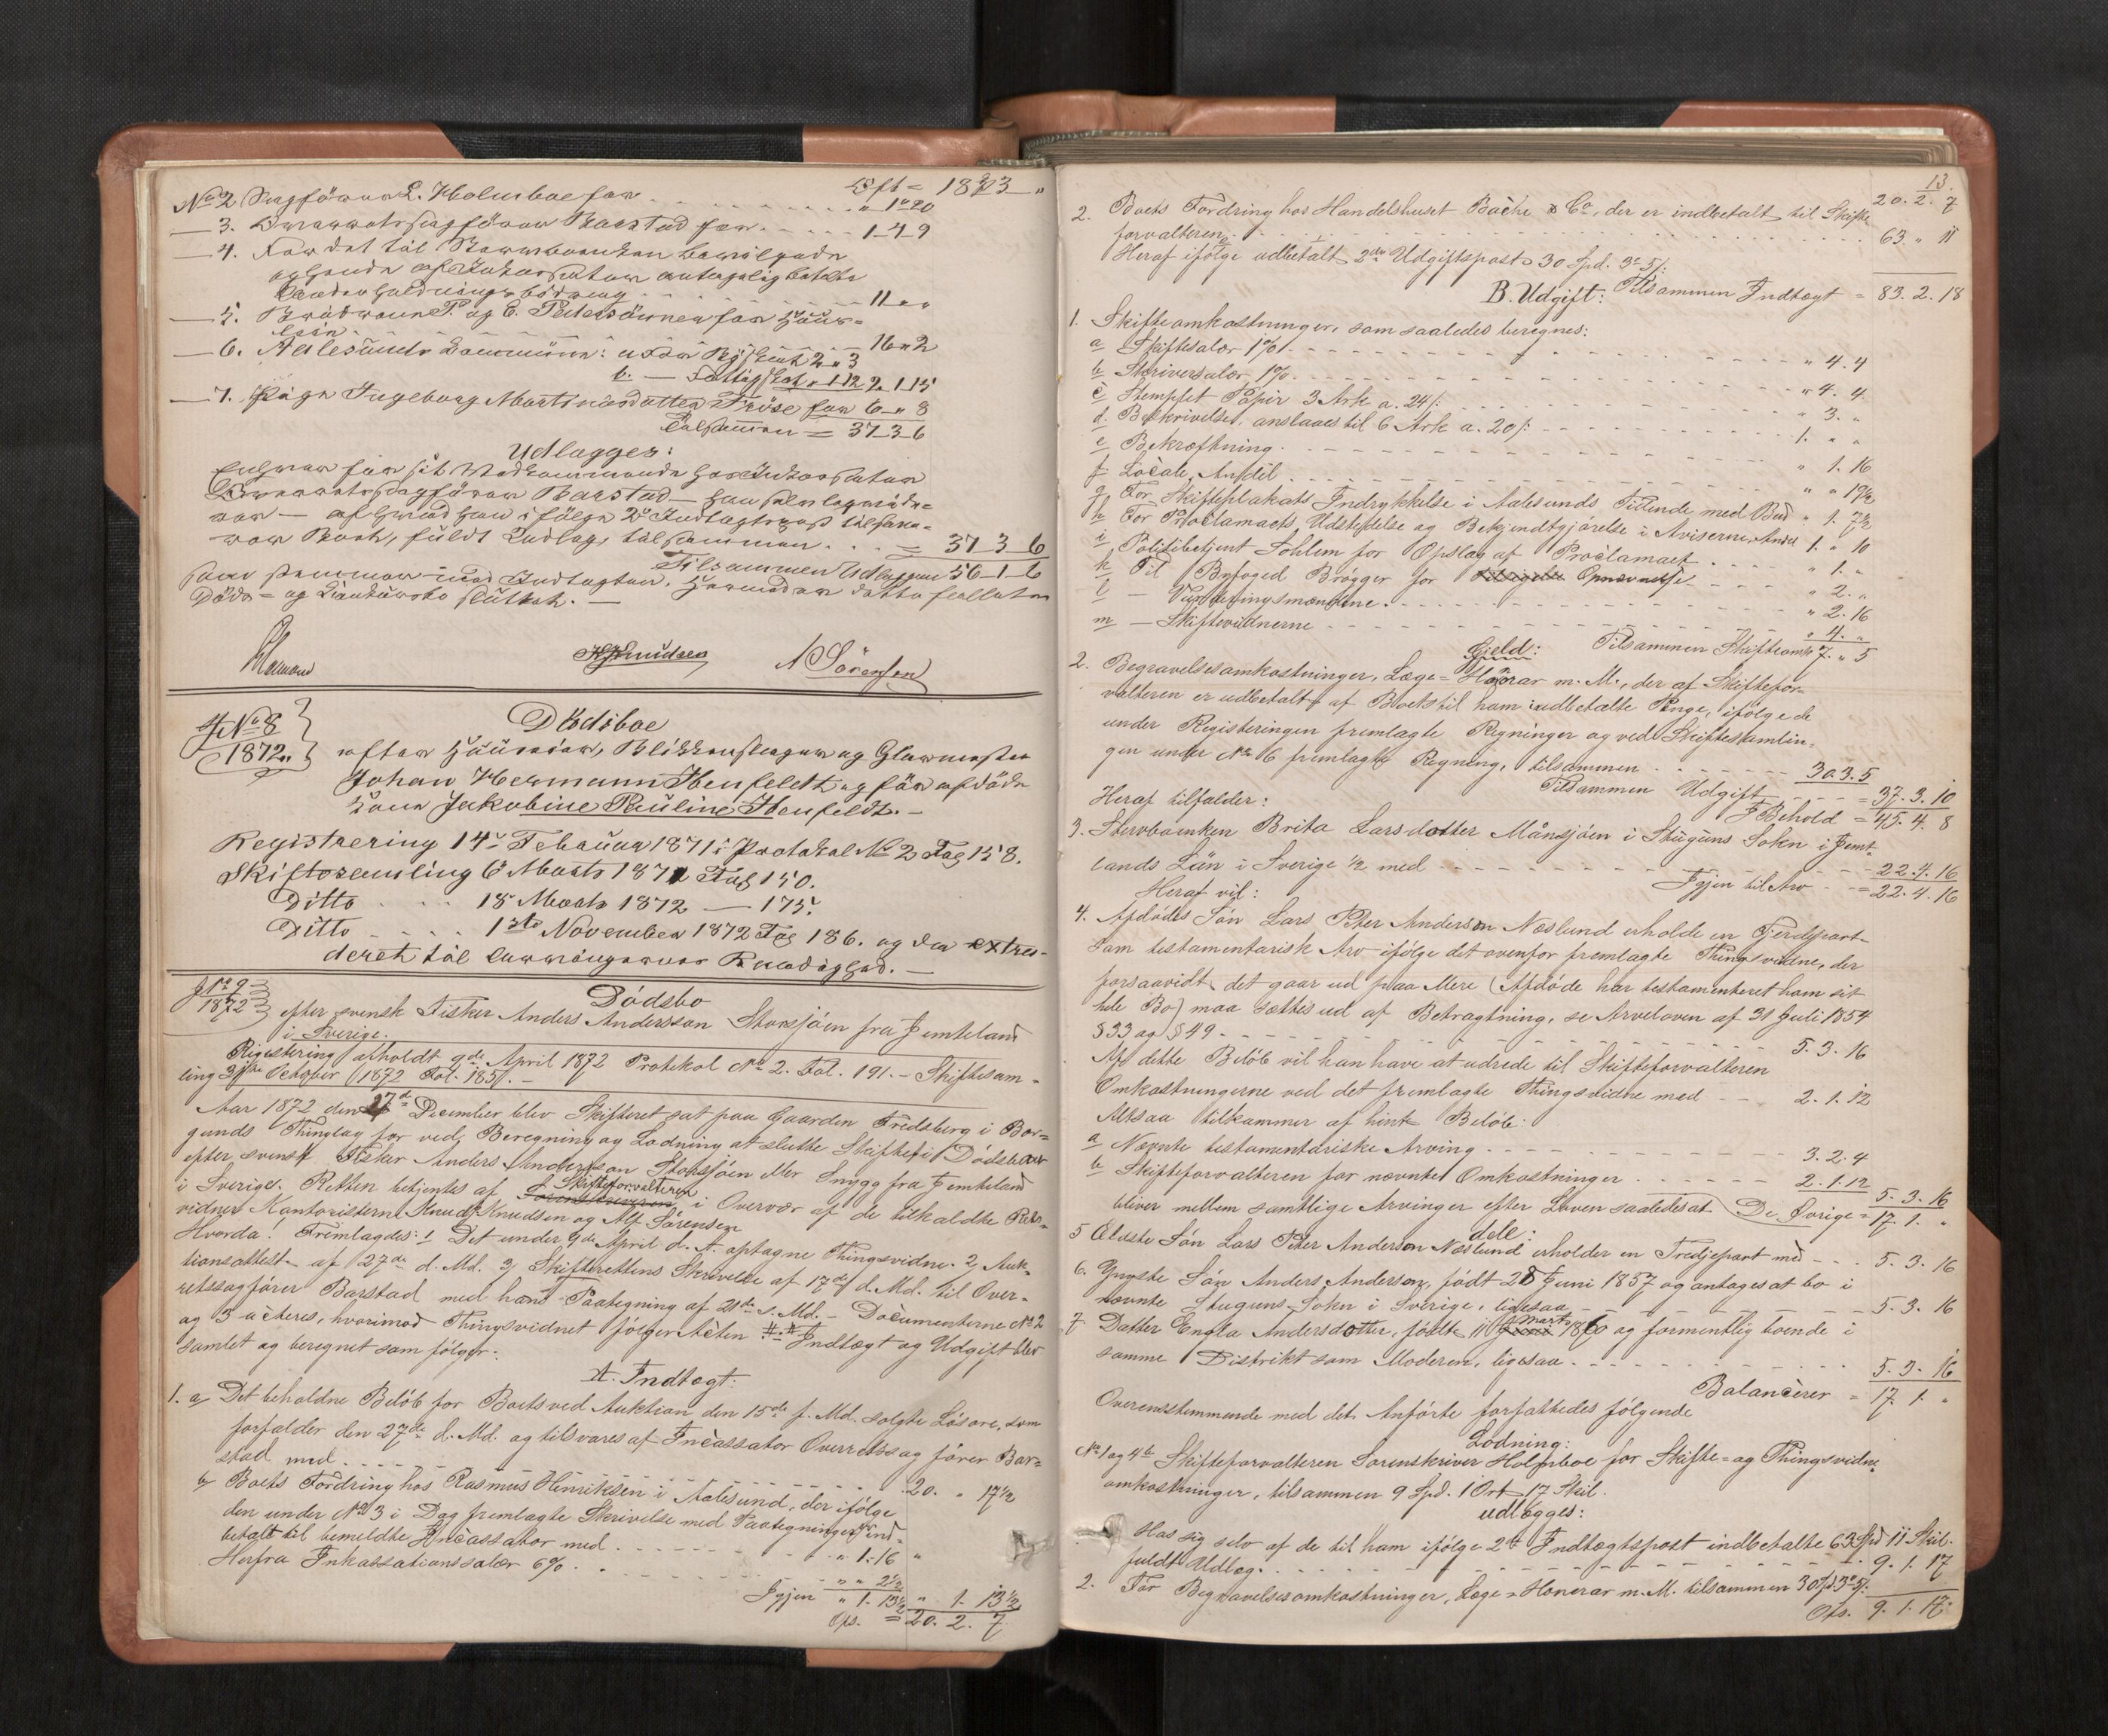 No 2 Sagförer L. Holmboe for . . . . . . . Oft = 18 3 3 "
" 1 " 20
— 3. Overretssagförer Barstad for . . . . 1 4 9
— 4. For det til Stervboenken bevilgede
og hende af Inkassator antagelig betalte
Underholdningsbidrag . . . . 11 " "
— 5. Brødrene P. og E. Petersönner for Huus-
leie . . . . 16 " 2
— 6. Aalesunds Commune: a For Byskat 2 " 3
b. — Fattigskat " 1 12 2. 1 15
— 7. Pige Ingeborg Martinusdatter Fröse for 6 " 8
Tilsammen = 37 3 6
Udlægges:
Enhver for sit Vedkommende hos Inkassator
Overretssagförer Barstad —
— af hvad han ifölge 2d Indtægtspost tilsva-
rer Boet, fuldt Udlæg, tilsammen . . . = 37 3 6
Tilsammen Udlæggene 56 1 6
som stemmer med Indtægten. Hermed er dette fallerte
Döds- og sluttet. —
N Sörensen
J No 8
1872.
Dödsboe
efter Huuseier, Blikkenslager og Glarmester
Johan Hermann Henfeldt og för afdöde
Kone Jakobine Pauline Henfeldt. —
Registrering 14de Februar 1871 i Protokol No 2 Fol 158.
Skiftesamling 6 Marts 1871 Fol 150.
Ditto . . . . 18 Marts 1872 — 175.
Ditto . . . . 1ste November 1872 Fol 186. og der extra-
deret til Raadighed. —
J No 9
1872
Dödsbo
efter svensk Fisker Anders Andersson Storsjöen fra Jemteland
i Sverige.
Registering afholdt 9de April 1872 Protokol No 2. Fol. 191. — Skiftesam-
ling 31te October 1872 Fol. 185. —
Aar 1872 den 27de December blev Skifteret sat paa Gaarden Fredsberg i Bor-
gunds Thinglag for ved Beregning og Lodning at slutte Skiftet i Dödsboet
efter svensk Fisker Anders Andersson Storsjöen eller Snygg fra Jemteland
i Sverige. Retten betjentes af Sorenskriveren Skifteforvalteren i Overvær af de tilkaldte Rets-
vidner Kantoristerne Knud Knudsen og Alf Sörensen
Hvorda! Fremlagdes: 1 Det under 9de April d. A. optagne Thingsvidne. 2 Auk-
tionsattest af 27de d. Md. 3, Skifterettens Skrivelse af 17de d. Md. til Over-
retssagförer Barstad med hans Paategning af 21de s. Md. — Documenterne No 2
og 3 acteres, hvorimod Thingsvidnet fölger Acten. Indtægt og Udgift blev
samlet og beregnet som fölger:
A. Indtægt:
1. a Det beholdne Belöb for Boets ved Auktion den 15de f. Md. solgte Lösöre, som
forfalder den 27de d. Md. og tilsvares af Incassator Overretssagförer Bar-
stad med . . . . . 20. " 17½
b Boets Fordring hos Rasmus Henriksen i Aalesund, der ifölge
den under No 3 i Dag fremlagte Skrivelse med Paategninger, ind-
betalt til bemeldte Incassator med . . . . " 1. 16 "
Herfra Inkassationssalær 6% . . . . " " 2½
Igjen " 1. 13½ " 1. 13½
Ops. = 20. 2. 7
13.
20. 2. 7
2. Boets Fordring hos Handelshuset Bache & Co, der er indbetalt til Skifte-
forvalteren . . . . 63. " 11
Heraf ifölge udbetalt 2den Udgiftspost 30 Spd. 3 5/:
Tilsammen Indtægt = 83. 2. 18
B. Udgift:
1. Skifteomkostninger, som saaledes beregnes:
a Skiftesalær 1% . . . . " 4. 4
b Skriversalær 1% . . . . " 4. 4.
c Stemplet Papir 3 Ark a. 24/: . . . . " 3. "
d. Beskrivelse, anslaaes til 6 Ark a. 20/: . . . . 1. " "
e Bekræftning . . . . " 1. 16
f. Locale, Andel . . . . " " 19½
g. For Skifteplakats Indrykkelse i Aalesunds Tidende med Bud " 1. 7½
h For Proclamaets Udstedelse og Bekjendtgjörelse i Aviserne, Andel 1. " 10
i Politibetjent Sohlem for Opslag af Proclamaet . . . " 1. "
k Til Byfoged Brögger for Opnævnelse . . . " 2. "
l — Vurderingsmændene . . . . " 2. 16
m — Skiftevidnerne . . . . " 4. "
Tilsammen Skifteomk. 7. " 5
Gjeld:
2. Begravelsesomkostninger, Læge-Honorar m. M., der af Skiftefor-
valteren er udbetalt af Boets til ham indbetalte Penge, ifölge de
under Registeringen fremlagte Regninger og ved Skiftesamlin-
gen under No 6 fremlagte Regning, tilsammen . . . . 30. 3. 5
Tilsammen Udgift = 37. 3. 10
I Behold = 45. 4. 8
Heraf tilfalder:
3. Stervboenken Brita Larsdotter Månsjöen i Stuguns Sokn i Jemt-
lands Län i Sverige ½ med . . . . 22. 4. 16
Igjen til Arv = 22. 4. 16
Heraf vil:
4. Afdödes Sön Lars Peter Anderson Næslund erholde en Fjerdepart
som testamentarisk Arv ifölge det ovenfor fremlagte Thingsvidne, der
forsaavidt det gaar ud paa Mere (Afdöde har testamenteret ham sit
hele Bo) maa sættes ud af Betragtning, se Arveloven af 31 Juli 1854
§ 33 og § 49 . . . . 5. 3. 16
Af dette Belöb vil han have at udrede til Skifteforvalteren
Omkostningerne ved det fremlagte Thingsvidne med . . . 2. 1. 12
Altsaa tilkommer af hint Belöb:
a Nævnte testamentariske Arving . . . . 3. 2. 4
b Skifteforvalteren for nævnte Omkostninger . . . . 2. 1. 12
5. 3. 16
De Övrige = 17. 1. "
bliver mellem samtlige Arvinger efter Loven saaledes at
dele:
5 Ældste Sön Lars Peter Anderson Næslund erholder en Tredjepart med . . . 5. 3. 16
6. Yngste Sön Anders Anderson, födt 28 Juni 1857 og antages at bo i
nævnte Stuguns Sokn i Sverige, ligesaa . . . . 5. 3. 16
7 Datter Engla Andersdotter, födt 11 Juni Marts 1860 og formentlig boende i
samme Distrikt som Moderen, ligesaa . . . . 5. 3. 16
Balancerer = 17. 1. "
Overensstemmende med det Anförte forfattedes fölgende
Lodning:
No 1 og 4b Skifteforvalteren Sorenskriver Holmboe for Skifte- og Thingsvidne-
omkostninger, tilsammen 9 Spd. 1 Ort 17 Skil.
udlægges:
Hos sig selv af de til ham ifölge 2d Indtægtspost indbetalte 63 Spd 11 Skil.
fuldt Udlæg . . . . 9. 1. 17
2. For Begravelsesomkostninger, Læge-Honorar m. M. tilsammen 30 Spd. 3 5/:
Ops. 9. 1. 17